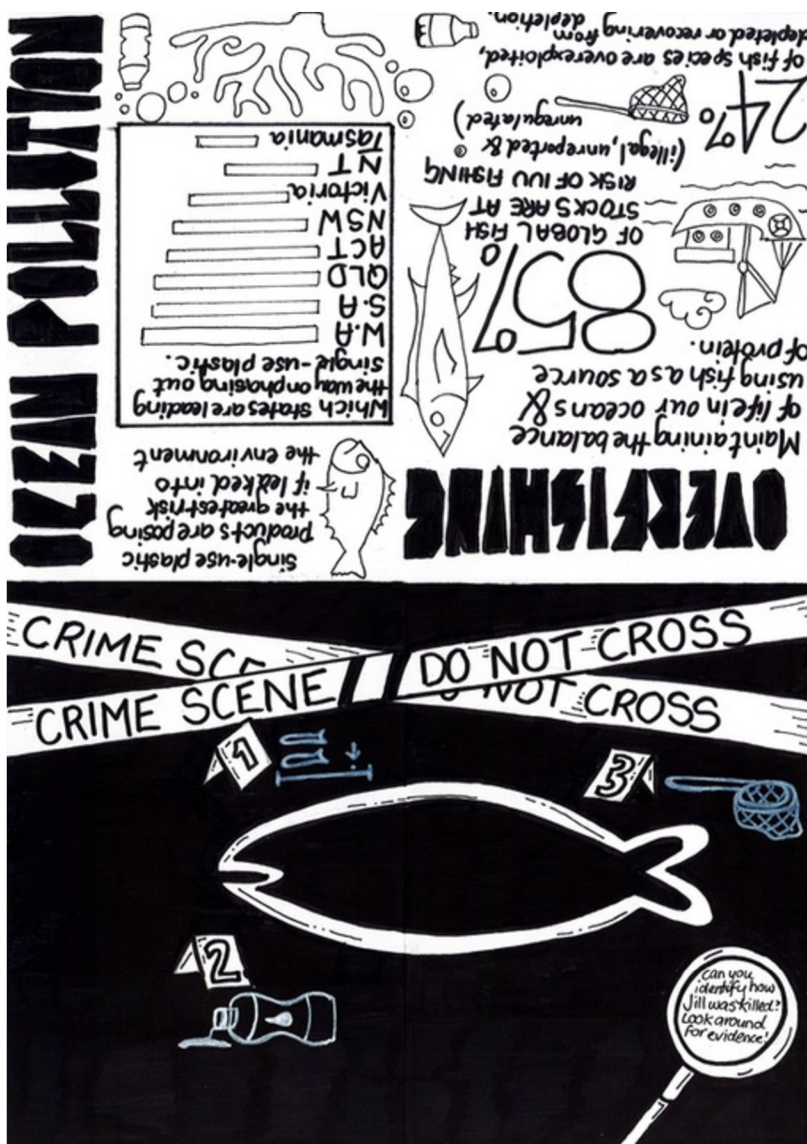 OCEAN POLLUTION
Single-use plastic
products are posing
the greatest risk
if leaked into
the environment
Which states are leading
the way on phasing out
single-use plastic.
W.A
S.A
QLD
ACT
NSW
Victoria
NT
Tasmania
OVERFISHING
Maintaining the balance
of life in our oceans &
using fish as a source
of protein.
85%
OF GLOBAL FISH
STOCKS ARE AT
RISK OF IUU FISHING
(illegal, unreported &
unregulated)
24%
of fish species are overexploited,
depleted or recovering from
depletion.
CRIME SCE
NOT CROSS
CRIME SCENE
DO NOT CROSS
1
3
2
can you
identify how
Jill was killed?
Look around
for evidence!